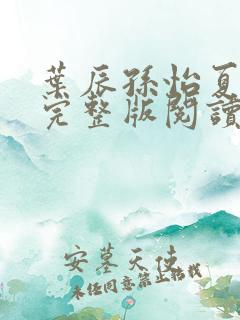 葉辰孫怡夏
完整版閱讀
安墓天使
未经同意禁止转载